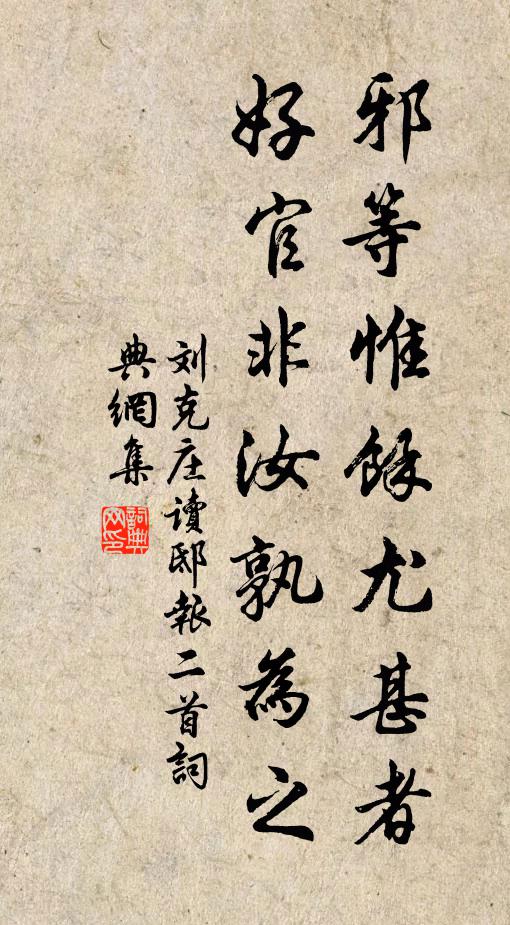 邪等惟餘尤甚者
好官非汝孰為之
刘克庄讀邸報二首詞
典網集
詞典网印